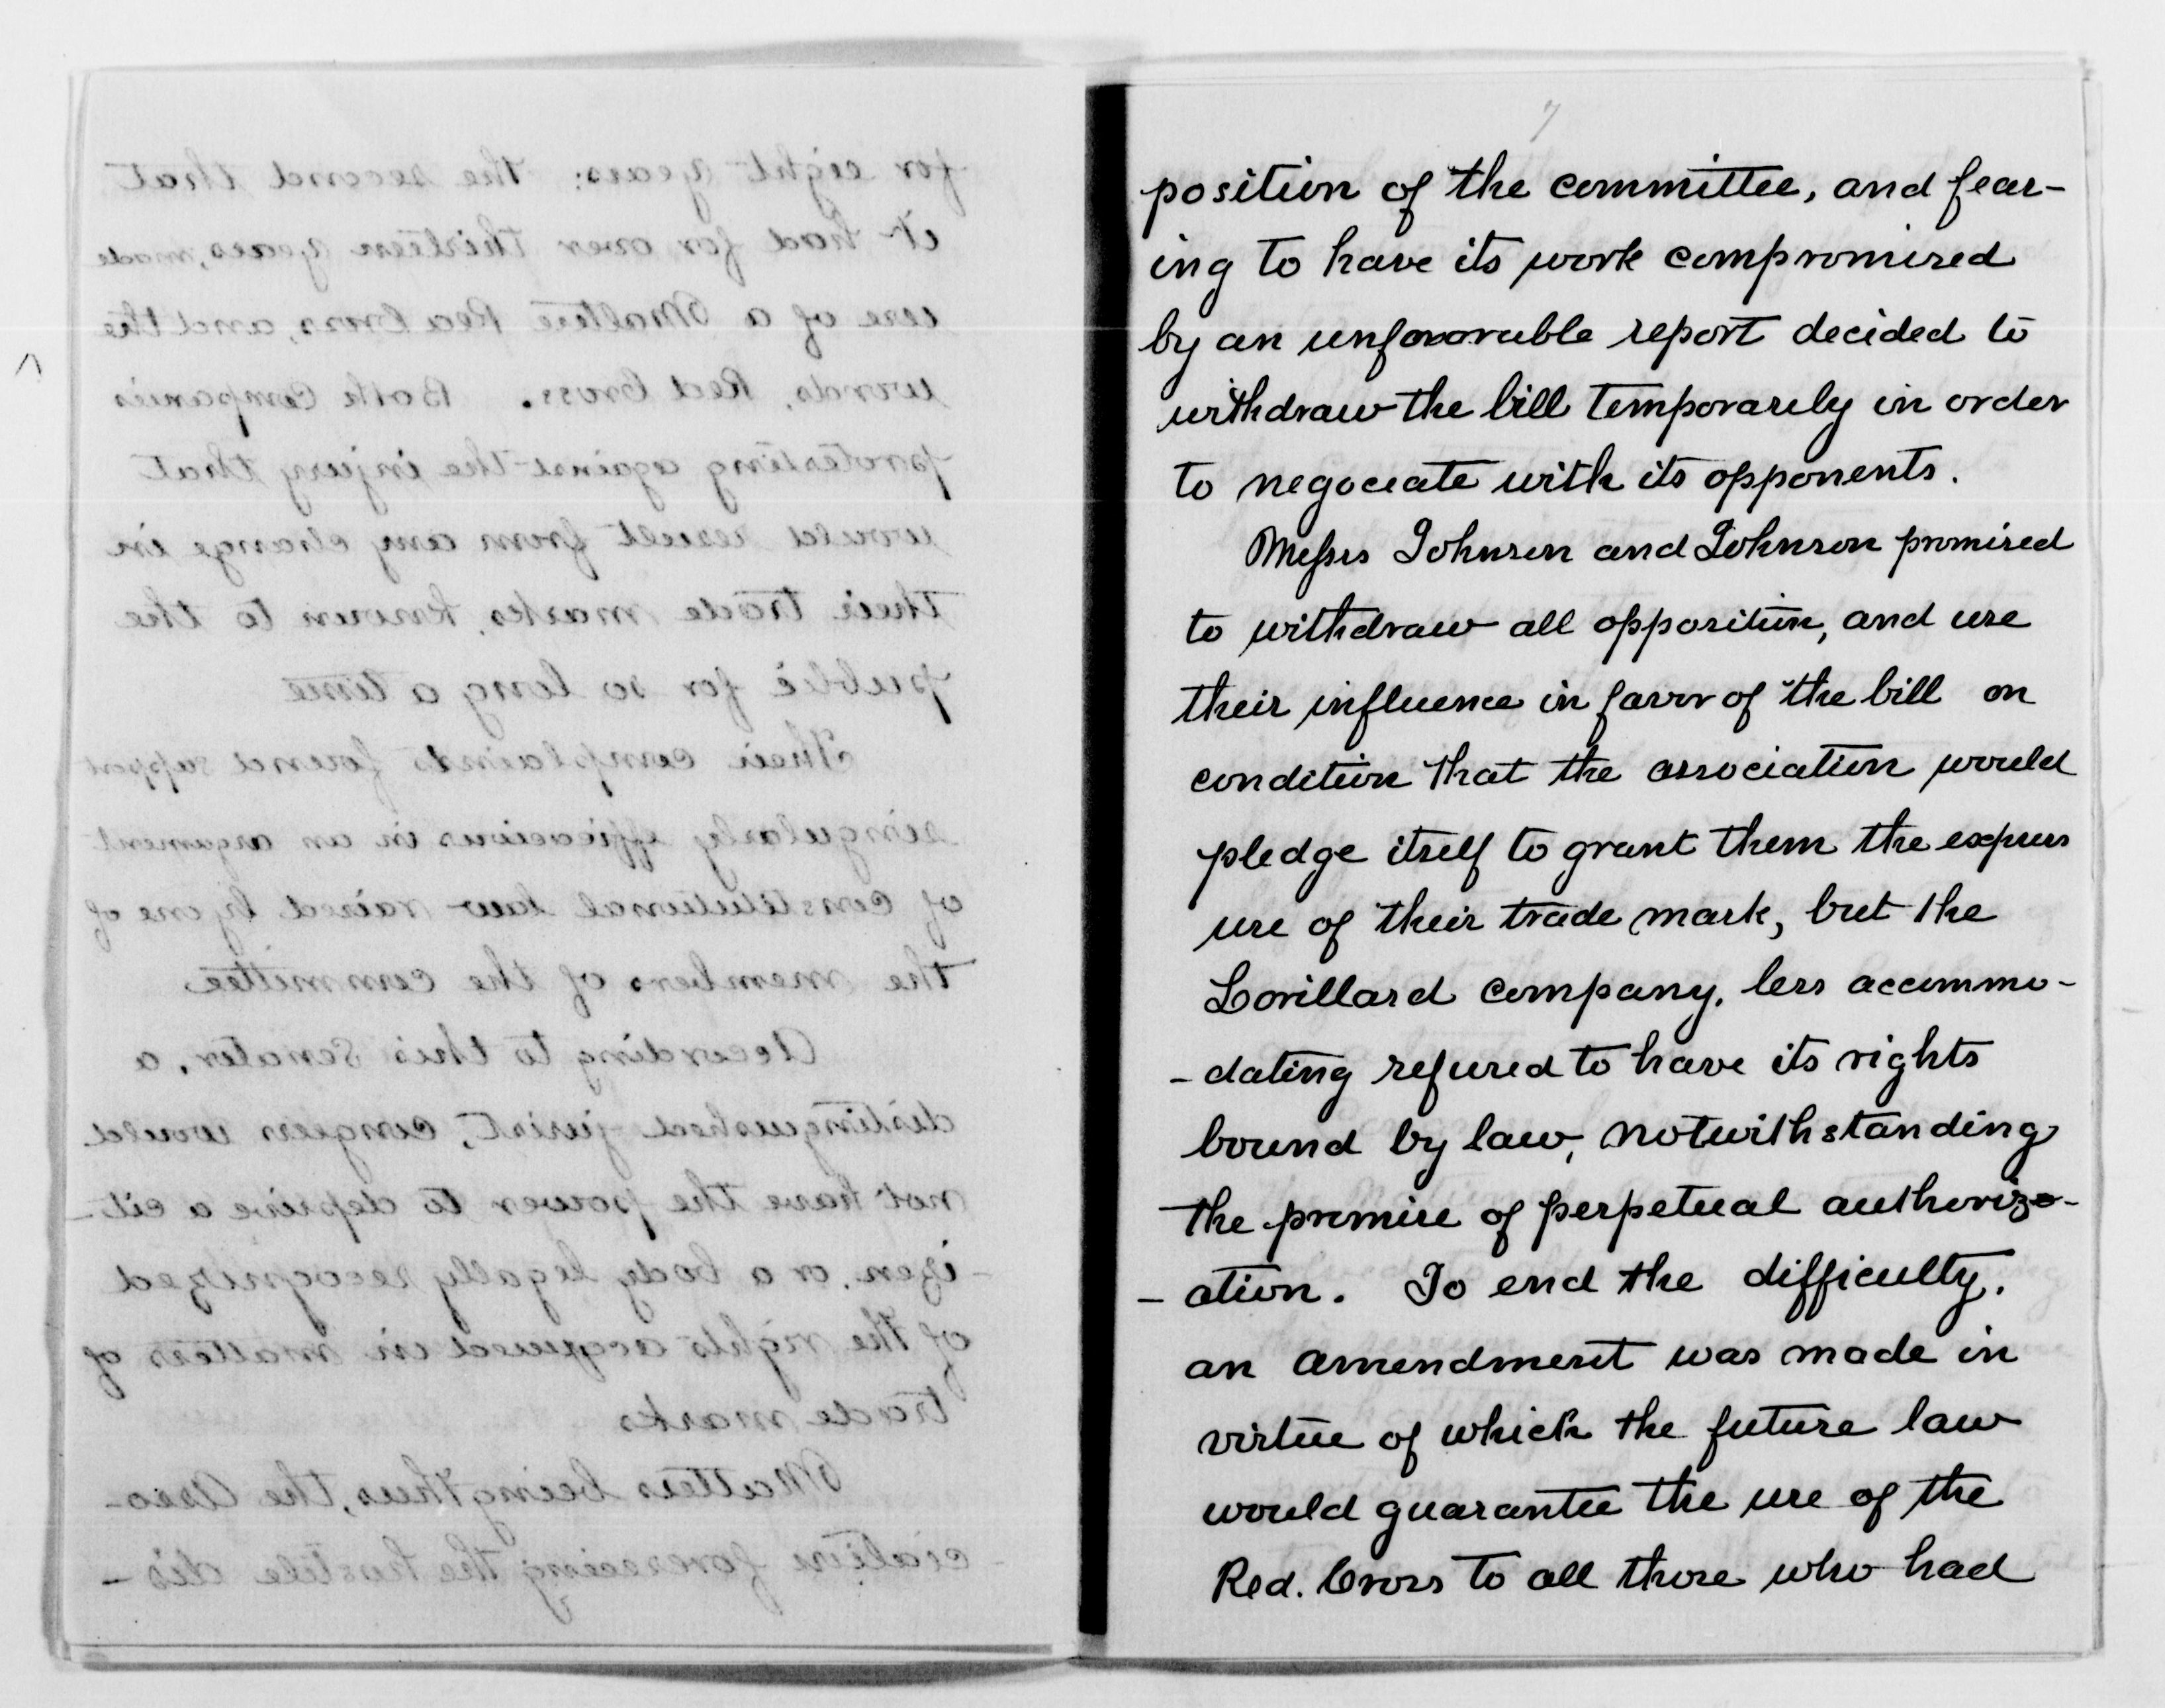 for eight years: the second that
it had for over thirteen years, made
use of a Maltese Red Cross, and the
words, Red Cross. Both companies
protesting against the injury that
would result from any change in
their trade marks, known to the
public for so long a time
Their complaints found support
singularly efficacious in an argument
of constitutional law raised by one of
the members of the committee
According to this Senator, a
distinguished jurist, congress would
not have the power to deprive a cit-
-izen, or a body legally recognized
of the rights acquired in matters of
trade marks
Matters being thus, the Asso-
-ciation foreseeing the hostile dis-
7
position of the committee, and fear-
ing to have its work compromised
by an unfavorable report decided to
withdraw the bill temporarily in order
to negociate with its opponents.
Messrs Johnson and Johnson promised
to withdraw all opposition, and use
their influence in favor of the bill on
condition that the association would
pledge itself to grant them the express
use of their trade mark, but the
Lorillard company, less accommo-
-dating refused to have its rights
bound by law, notwithstanding
the promise of perpetual authoriza-
-ation. To end the difficulty,
an amendment was made in
virtue of which the future law
would guarantee the use of the
Red. Cross to all those who had